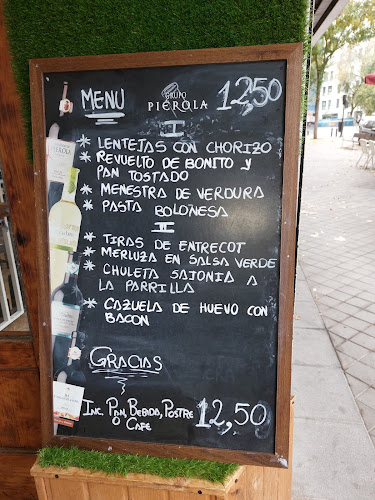 MENU GRUPO PIÉROLA 12,50
I
* LENTEJAS CON CHORIZO
* REVUELTO DE BONITO Y
PAN TOSTADO
* MENESTRA DE VERDURA
* PASTA BOLOÑESA
II
* TIRAS DE ENTRECOT
* MERLUZA EN SALSA VERDE
* CHULETA SAJONIA A
LA PARRILLA
* CAZUELA DE HUEVO CON
BACON
GRACIAS
INC. PAN, BEBIDA, POSTRE 12,50
O CAFE